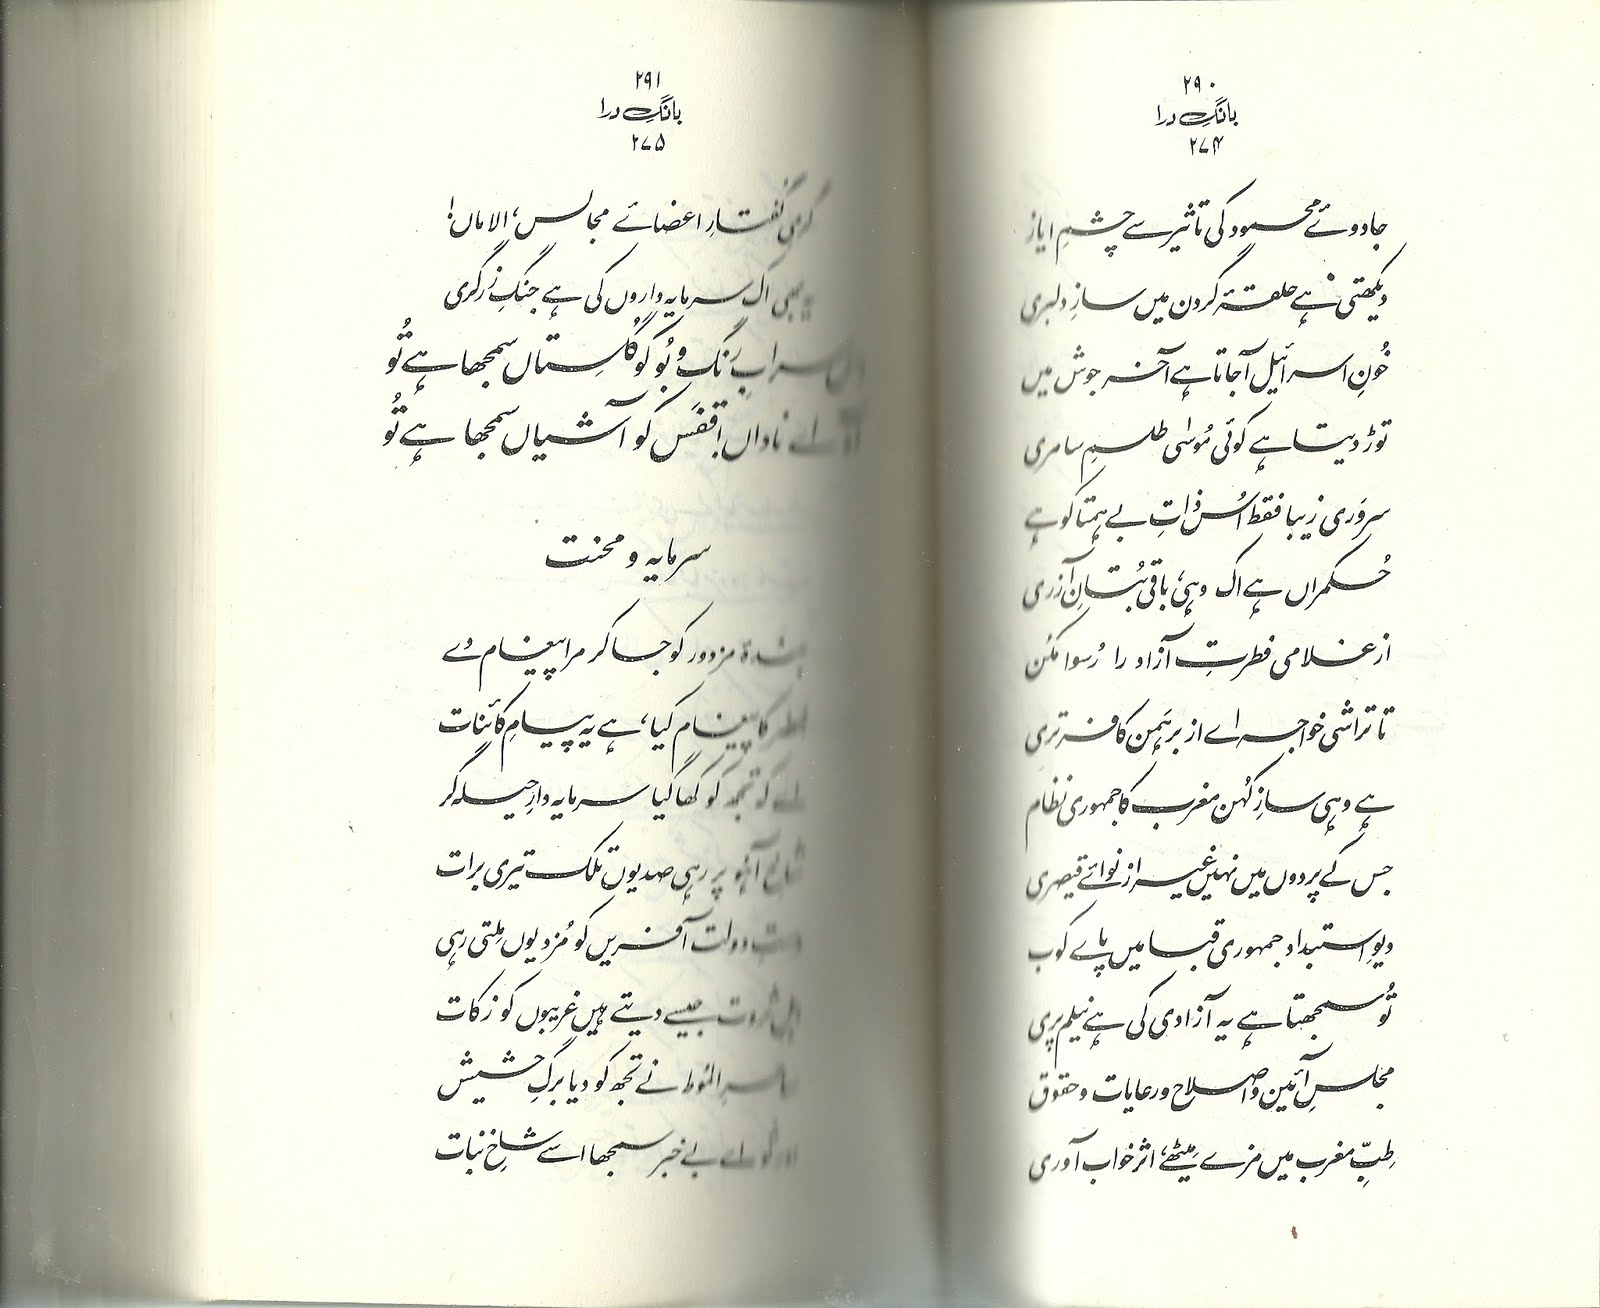 ۲۹۰
بانگِ درا
۲۷۴
جادوئے محمود کی تاثیر سے چشمِ ایاز
دیکھتی ہے حلقۂ گردن میں سازِ دلبری
خُونِ اسرائیل آجاتا ہے آخر جوش میں
توڑ دیتا ہے کوئی مُوسٰی طلسمِ سامری
سروَری زیبا فقط اُس ذاتِ بے ہمتا کو ہے
حُکمراں ہے اک وہی، باقی بُتانِ آزری
از غلامی فطرتِ آزاد را رُسوا مکُن
تا تراشی خواجہ اے از برہَمن کافر تری
ہے وہی سازِ کُہن مغرب کا جمہوری نظام
جس کے پردوں میں نہیں غیر از نوائے قیصری
دیوِ استبداد جمہوری قبا میں پاے کوب
تُو سمجھتا ہے یہ آزادی کی ہے نیلم پری
مجلسِ آئین و اصلاح و رعایات و حقوق
طِبِّ مغرب میں مزے میٹھے، اثر خواب آوری
۲۹۱
بانگِ درا
۲۷۵
گرمیِ گفتارِ اعضائے مجالس، الاماں!
یہ بھی اک سرمایہ داروں کی ہے جنگِ زرگری
اس سرابِ رنگ و بُو کو گلُستاں سمجھا ہے تُو
آہ اے ناداں! قفَس کو آشیاں سمجھا ہے تُو
سرمایہ و محنت
بندۂ مزدور کو جا کر مرا پیغام دے
خضر کا پیغام کیا، ہے یہ پیامِ کائنات
اے کہ تجھ کو کھا گیا سرمایہ دارِ حیلہ گر
شاخِ آہو پر رہی صدیوں تلک تیری برات
دستِ دولت آفریں کو مُزد یوں مِلتی رہی
اہلِ ثروت جیسے دیتے ہیں غریبوں کو زکات
ساحرِ الموط نے تجھ کو دیا برگِ حشیش
اور تُو اے بے خبر سمجھا اسے شاخِ نبات